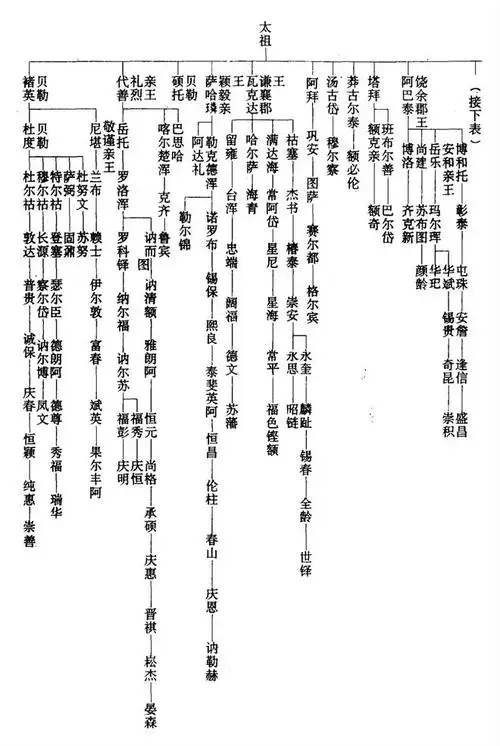 太祖
褚英 贝勒
杜度 贝勒
杜尔祜
敦达
普贵
诚保
庆春
恒颖
纯惠
崇善
穆尔祜
长源
察尔岱
讷尔博
凤文
特尔祜
登塞
瑟尔臣
德朗阿
德尊
秀福
瑞华
萨弼
固鼐
杜努文
苏努
尼堪 敬谨亲王
兰布
赖士
伊尔敦
富春
斌英
果尔丰阿
代善 礼烈亲王
岳托
罗洛浑
罗科铎
纳尔福
讷尔苏
福彭
庆明
福秀
庆恒
讷而图
讷清额
雅朗阿
恒元
尚格
承硕
庆惠
晋祺
崧杰
晏森
喀尔楚浑
克齐
鲁宾
巴思哈
硕托 贝勒
萨哈璘 颖毅亲王
阿达礼
勒克德浑
勒尔锦
诺罗布
锡保
熙良
泰斐英阿
恒昌
伦柱
春山
庆恩
讷勒赫
瓦克达 谦襄郡王
留雍
台浑
忠端
阔福
德文
苏藩
哈尔萨
海青
满达海
常阿岱
星尼
星海
常平
福色铿额
祜塞
杰书
椿泰
崇安
永思
昭梿
永奎
麟趾
锡春
全龄
世铎
阿拜
巩安
图萨
赛尔都
格尔宾
汤古岱
穆尔察
莽古尔泰
额必伦
塔拜
额克亲
额奇
班布尔善
巴尔岱
阿巴泰 饶余郡王
尚建
苏布图
颜龄
博洛
齐克新
岳乐 安和亲王
玛尔珲
华玘
华斌
锡贵
奇昆
崇积
博和托
彰泰
屯珠
安詹
逢信
盛昌
(接下表)